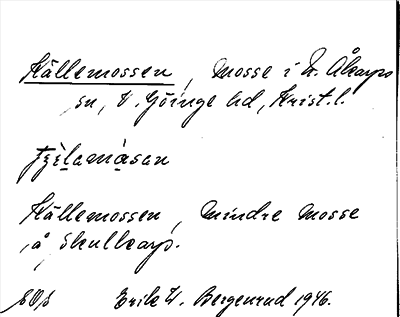 Källemossen, mosse i N. Åkarps
sn, V. Göinge hd, Krist. l.
Källemossen, mindre mosse
på Skullkarp.
Erik W. Bergenrud 1946.